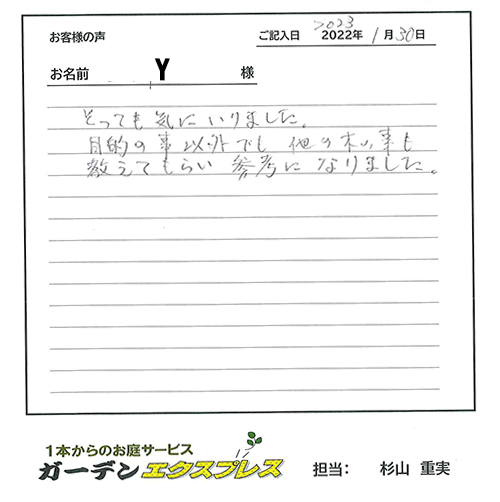 お客様の声
2023
ご記入日 2022年 1月30日
お名前 Y 様
とっても気にいりました。
目的の事以外でも他の木の事も
教えてもらい参考になりました。
1本からのお庭サービス
ガーデンエクスプレス 担当: 杉山 重実